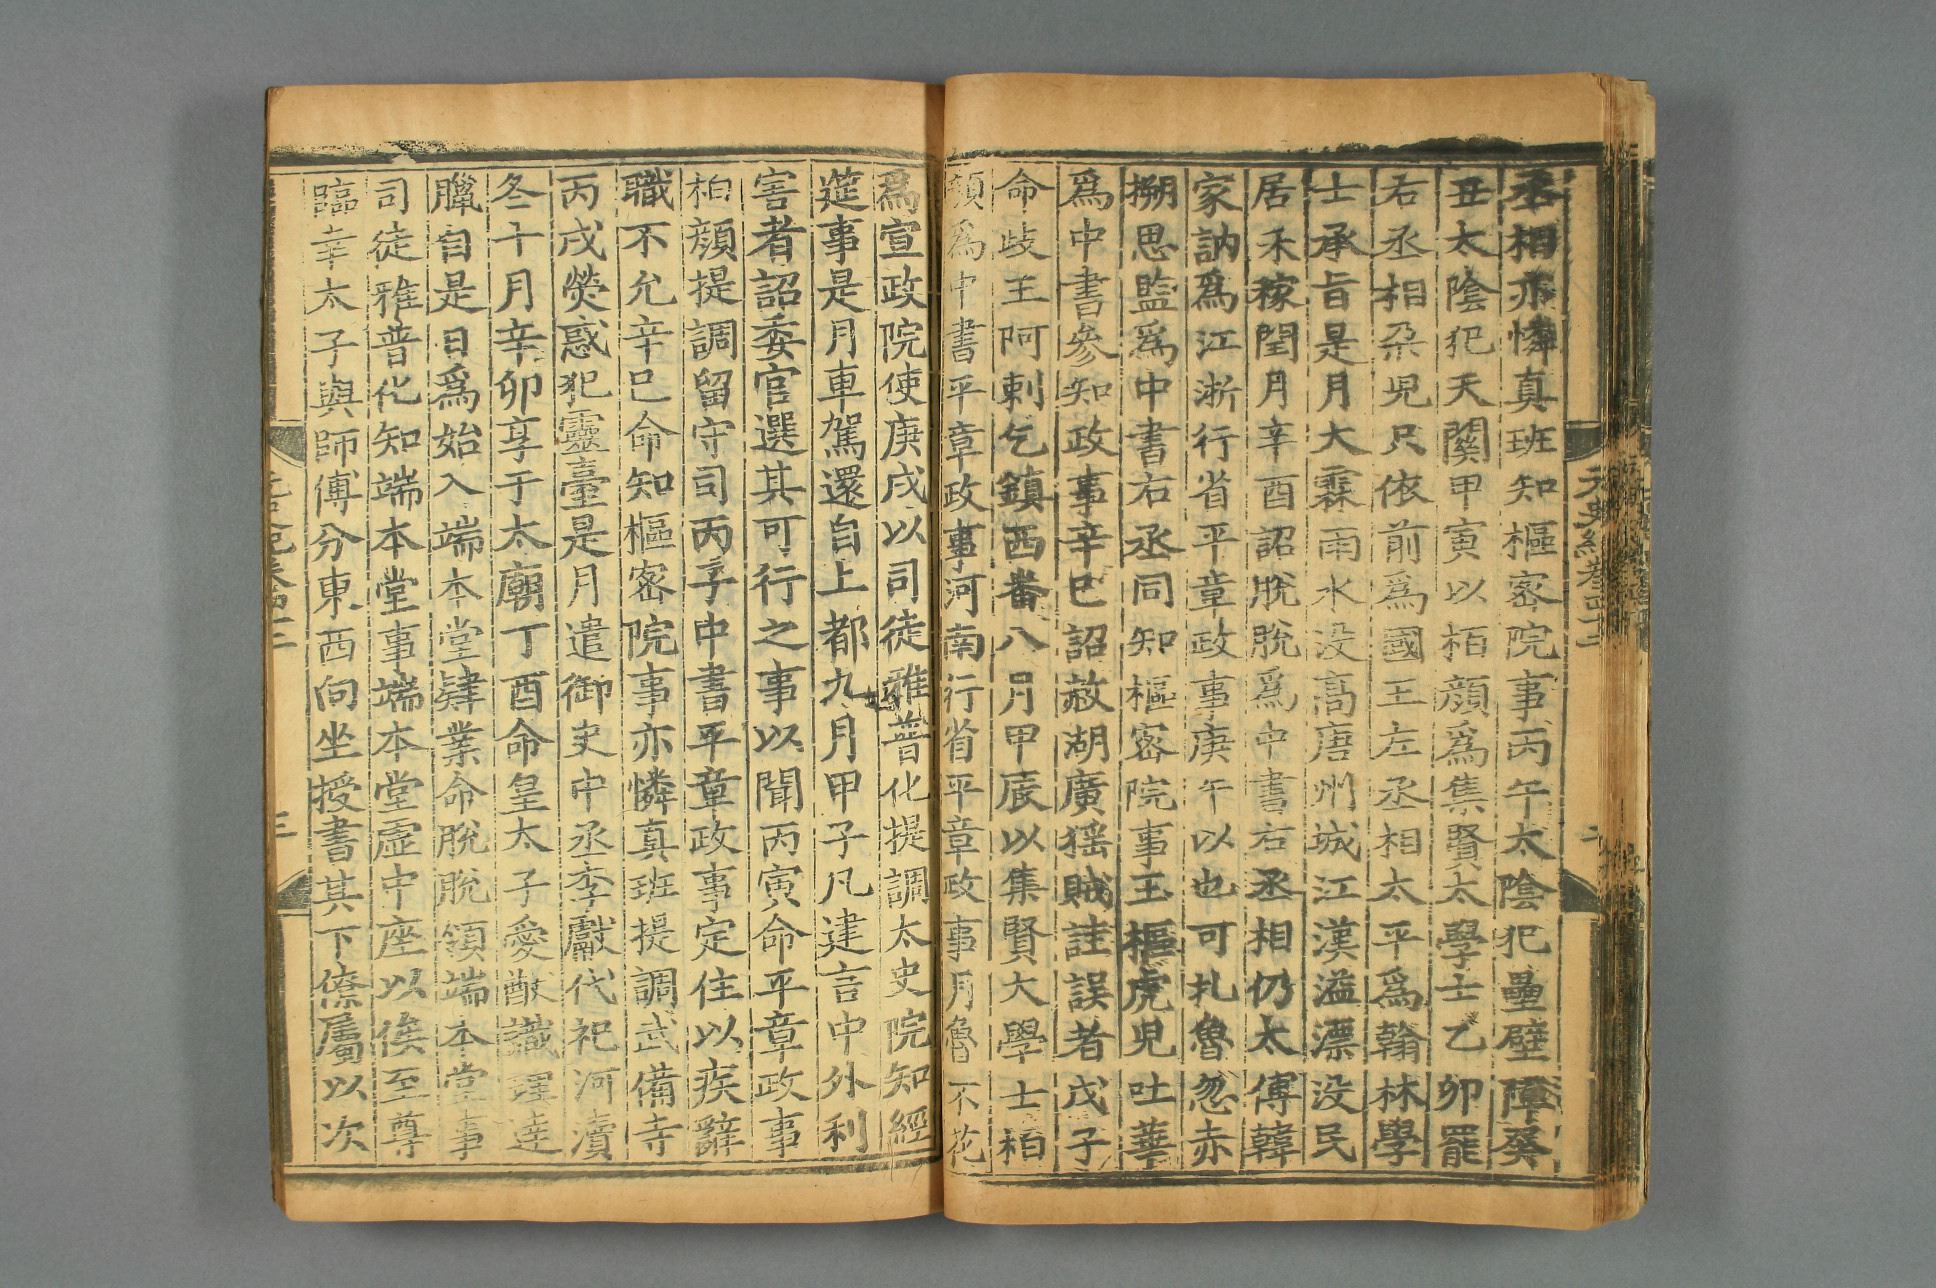 丞相亦憐真班知樞密院事丙午太陰犯壘壁陣癸
丑太陰犯天關甲寅以栢顔爲集賢太學士乙卯罷
右丞相朶兒只依前爲國王左丞相太平爲翰林學
士承旨是月大霖雨水没高唐州城江漢溢漂没民
居禾稼閏月辛酉詔脫脫爲中書右丞相仍太傅韓
家訥爲江浙行省平章政事庚午以也可扎魯忽赤
搠思監爲中書右丞同知樞密院事玉樞虎兒吐華
爲中書參知政事辛巳詔赦湖廣猺賊詿誤者戊子
命岐王阿剌乞鎮西番八月甲辰以集賢大學士栢
顔爲中書平章政事河南行省平章政事月魯不花
爲宣政院使庚戌以司徒雅普化提調太史院知經
筵事是月車駕還自上都九月甲子凡建言中外利
害者詔委官選其可行之事以聞丙寅命平章政事
栢顔提調留守司丙子中書平章政事定住以疾辭
職不允辛巳命知樞密院事亦憐真班提調武備寺
丙戌熒惑犯靈臺是月遣御史中丞李獻代祀河瀆
冬十月辛卯享于太廟丁酉命皇太子愛猷識理達
臘自是日爲始入端本堂肄業命脫脫領端本堂事
司徒雅普化知端本堂事端本堂虛中座以俟至尊
臨幸太子與師傅分東西向坐授書其下僚屬以次
元史紀卷四十二
三